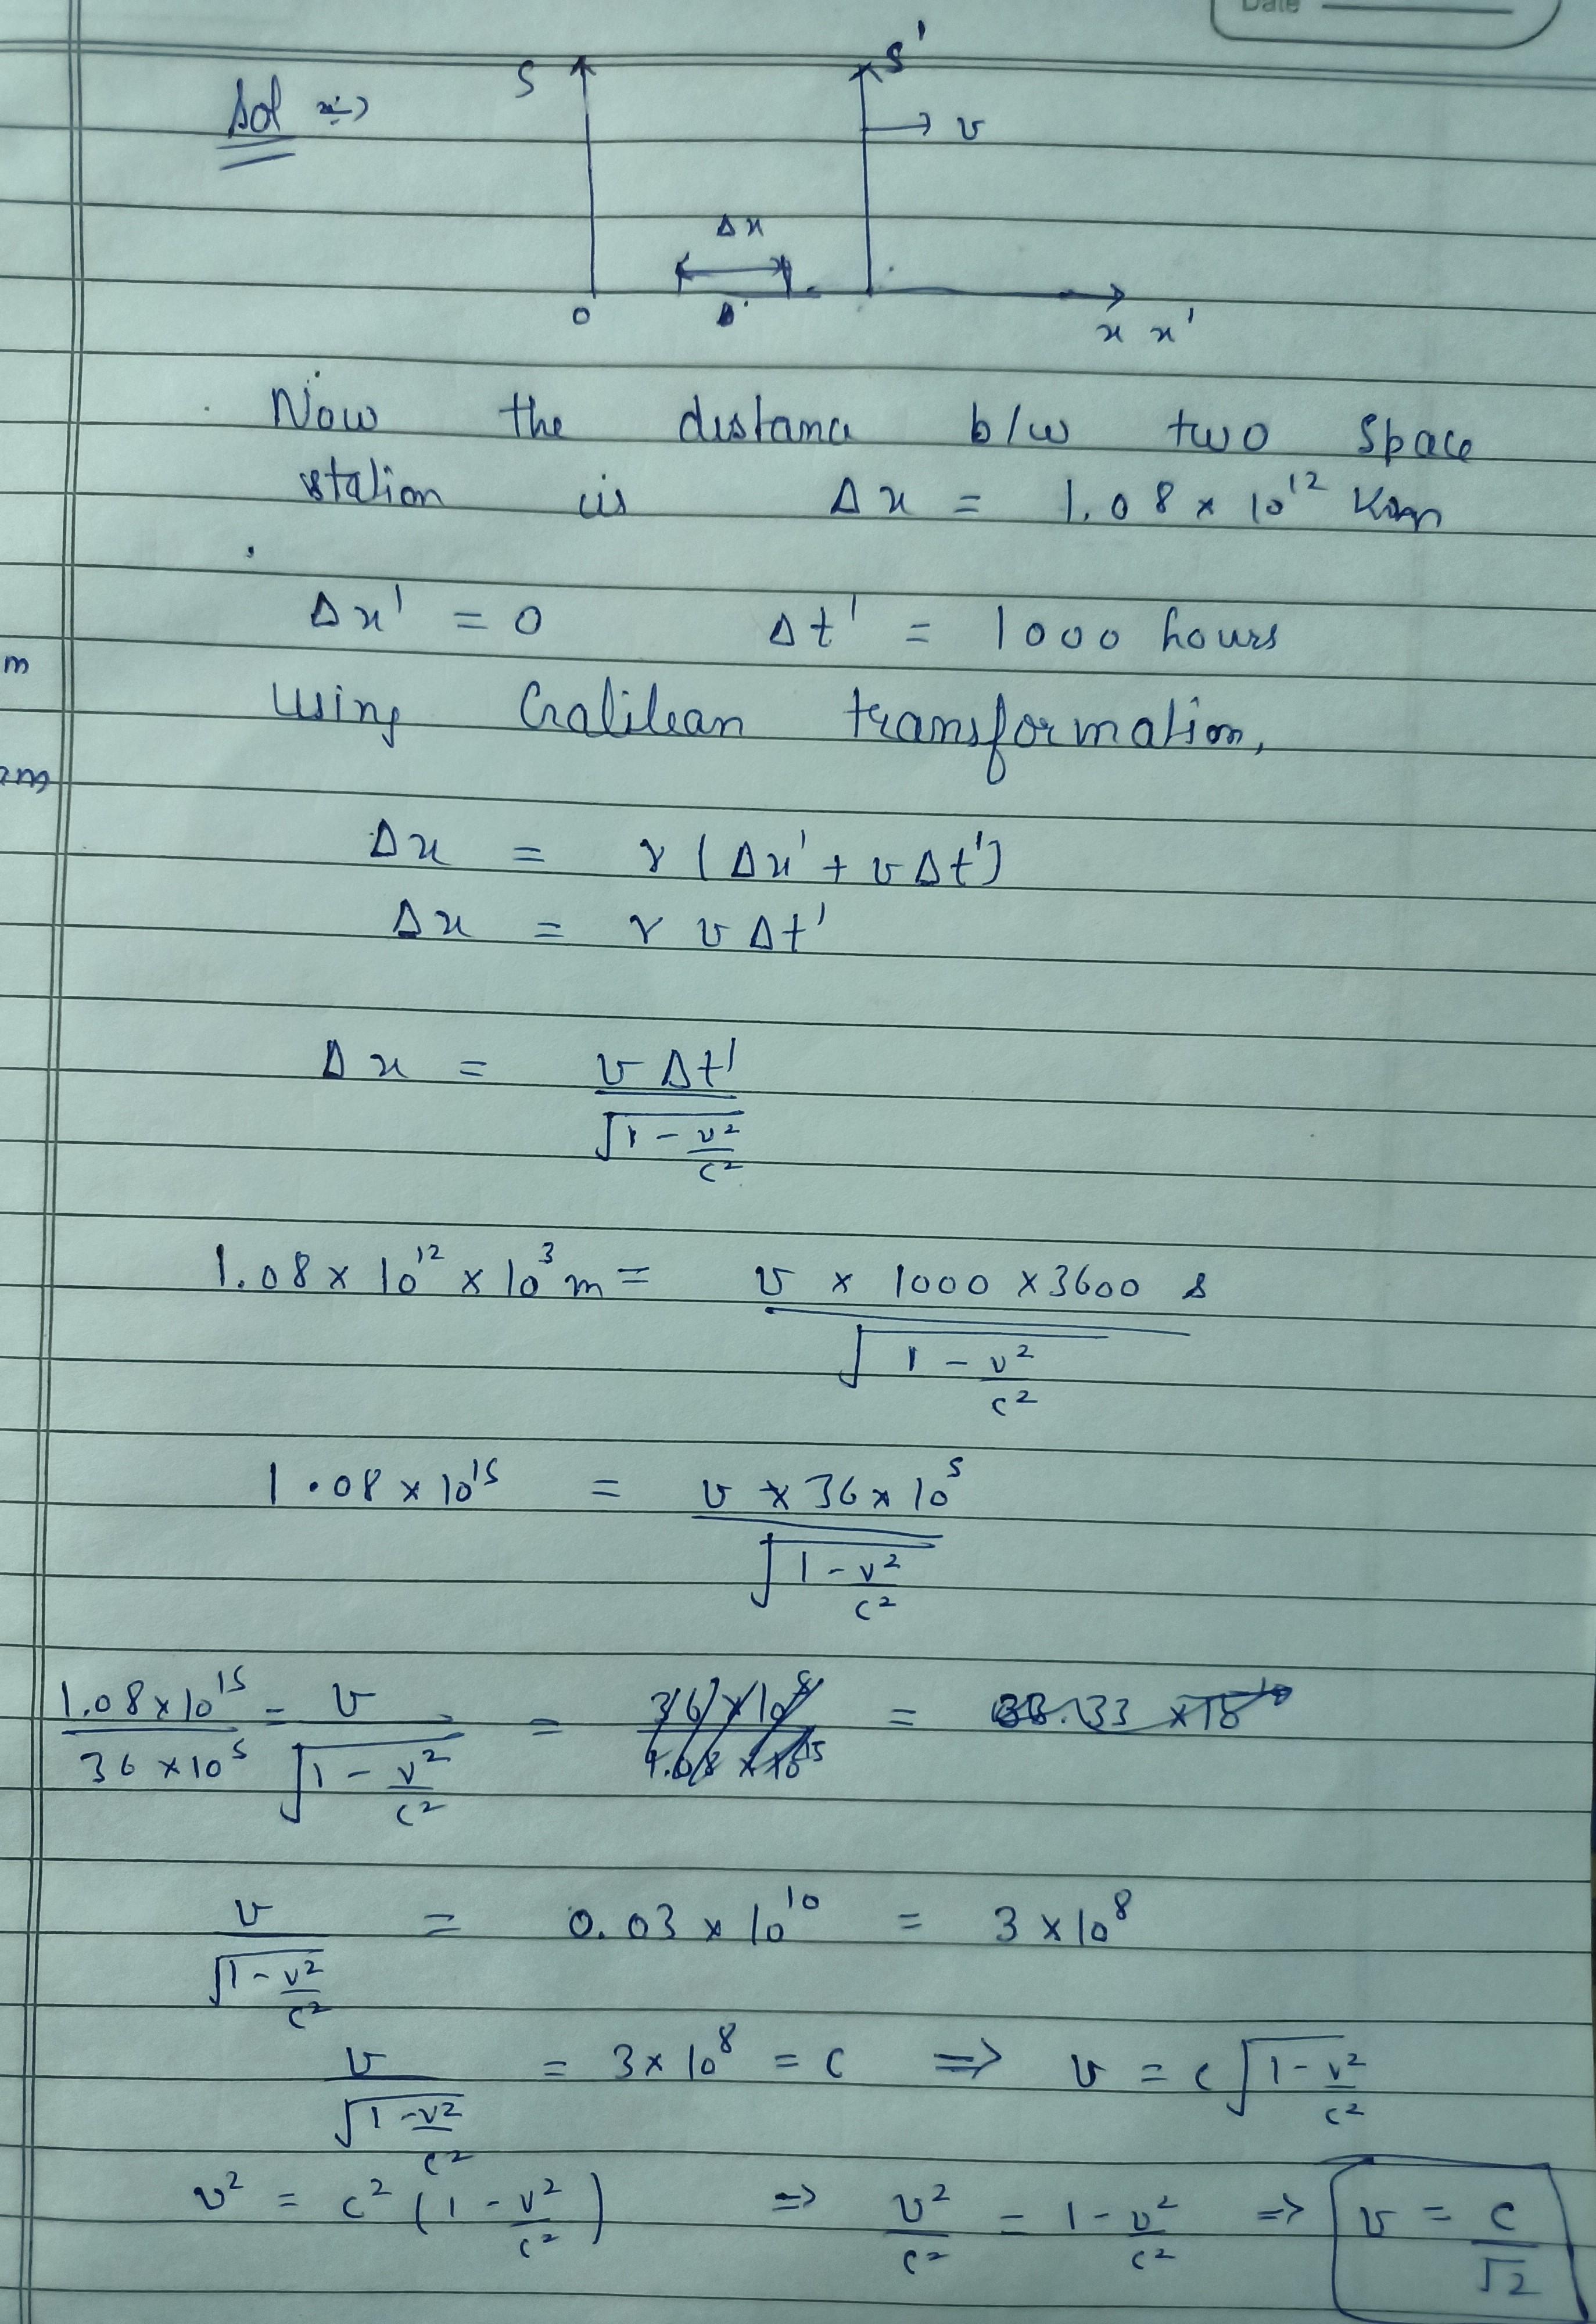 Date
S S'
Sol ⇒
→ v
Δx
O
x x'
Now the distance b/w two space
station is Δx = 1.08 × 10¹² Km
Δx' = 0 Δt' = 1000 hours
m
using Galilean transformation,
2m
Δx = γ (Δx' + vΔt')
Δx = γ v Δt'
Δx = v Δt' / √(1 - v²/c²)
1.08 × 10¹² × 10³ m = v × 1000 × 3600 s / √(1 - v²/c²)
1.08 × 10¹⁵ = v × 36 × 10⁵ / √(1 - v²/c²)
1.08 × 10¹⁵ / 36 × 10⁵ = v / √(1 - v²/c²) = =
v / √(1 - v²/c²) = 0.03 × 10¹⁰ = 3 × 10⁸
v / √(1 - v²/c²) = 3 × 10⁸ = c ⇒ v = c √(1 - v²/c²)
v² = c² (1 - v²/c²) ⇒ v²/c² = 1 - v²/c² ⇒ v = c/√2